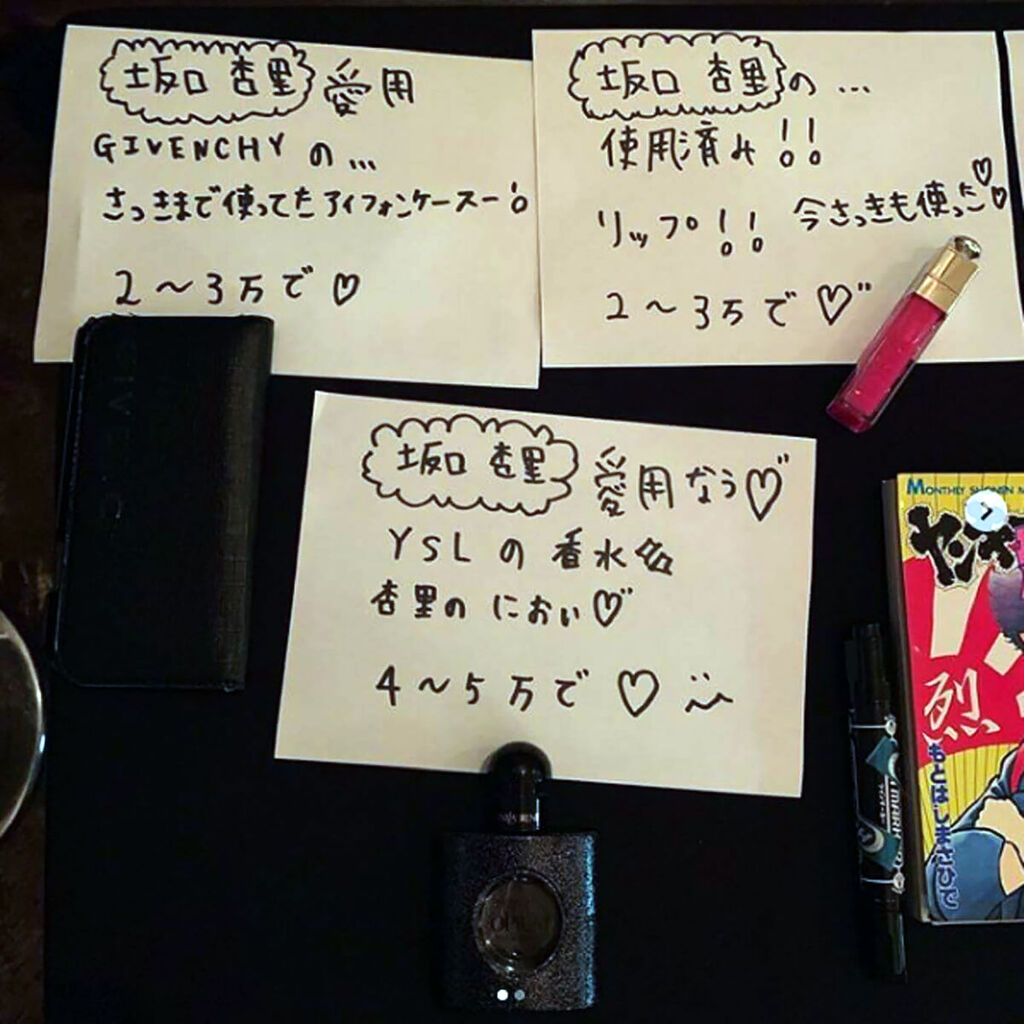 坂口 杏里 愛用
GIVENCHY の...
さっきまで使ってたアイフォンケースー!
2〜3万で♡
坂口 杏里の...
使用済み!!
リップ!! 今さっきも使った♡♡
2〜3万で♡"
坂口 杏里 愛用なう♡"
YSLの香水
杏里のにおい♡"
4〜5万で♡
MONTHLY SHONEN M
ヤンキ
烈